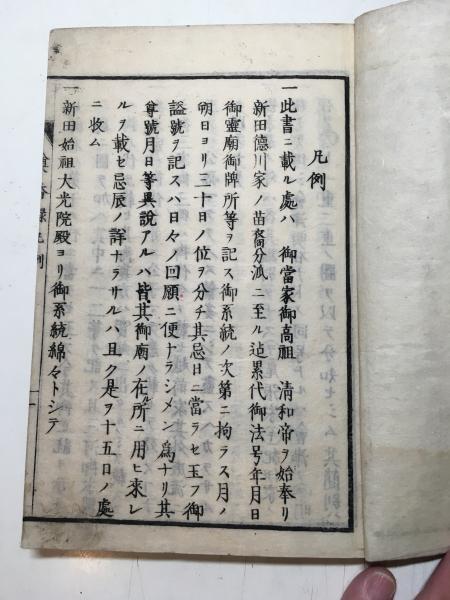 凡例
一此書ニ載ル處ハ　御當家御高祖　清和帝ヲ始奉リ
新田德川家ノ苗裔分派ニ至ル迠累代御法号年月日
御靈廟御牌所等ヲ記ス御系統ノ次第ニ拘ラス月ノ
朔日ヨリ三十日ノ位ヲ分チ其忌日ニ當ラセ玉フ御
謚號ヲ記スハ日々ノ回願ニ便ナラシメン爲ナリ其
尊號月日等異說アルハ皆其御廟ノ在ル所ニ用ヒ來レ
ルヲ載セ忌辰ノ詳ナラサルハ且ク是ヲ十五日ノ處
ニ收ム
一新田始祖大光院殿ヨリ御系統綿々トシテ
凡例